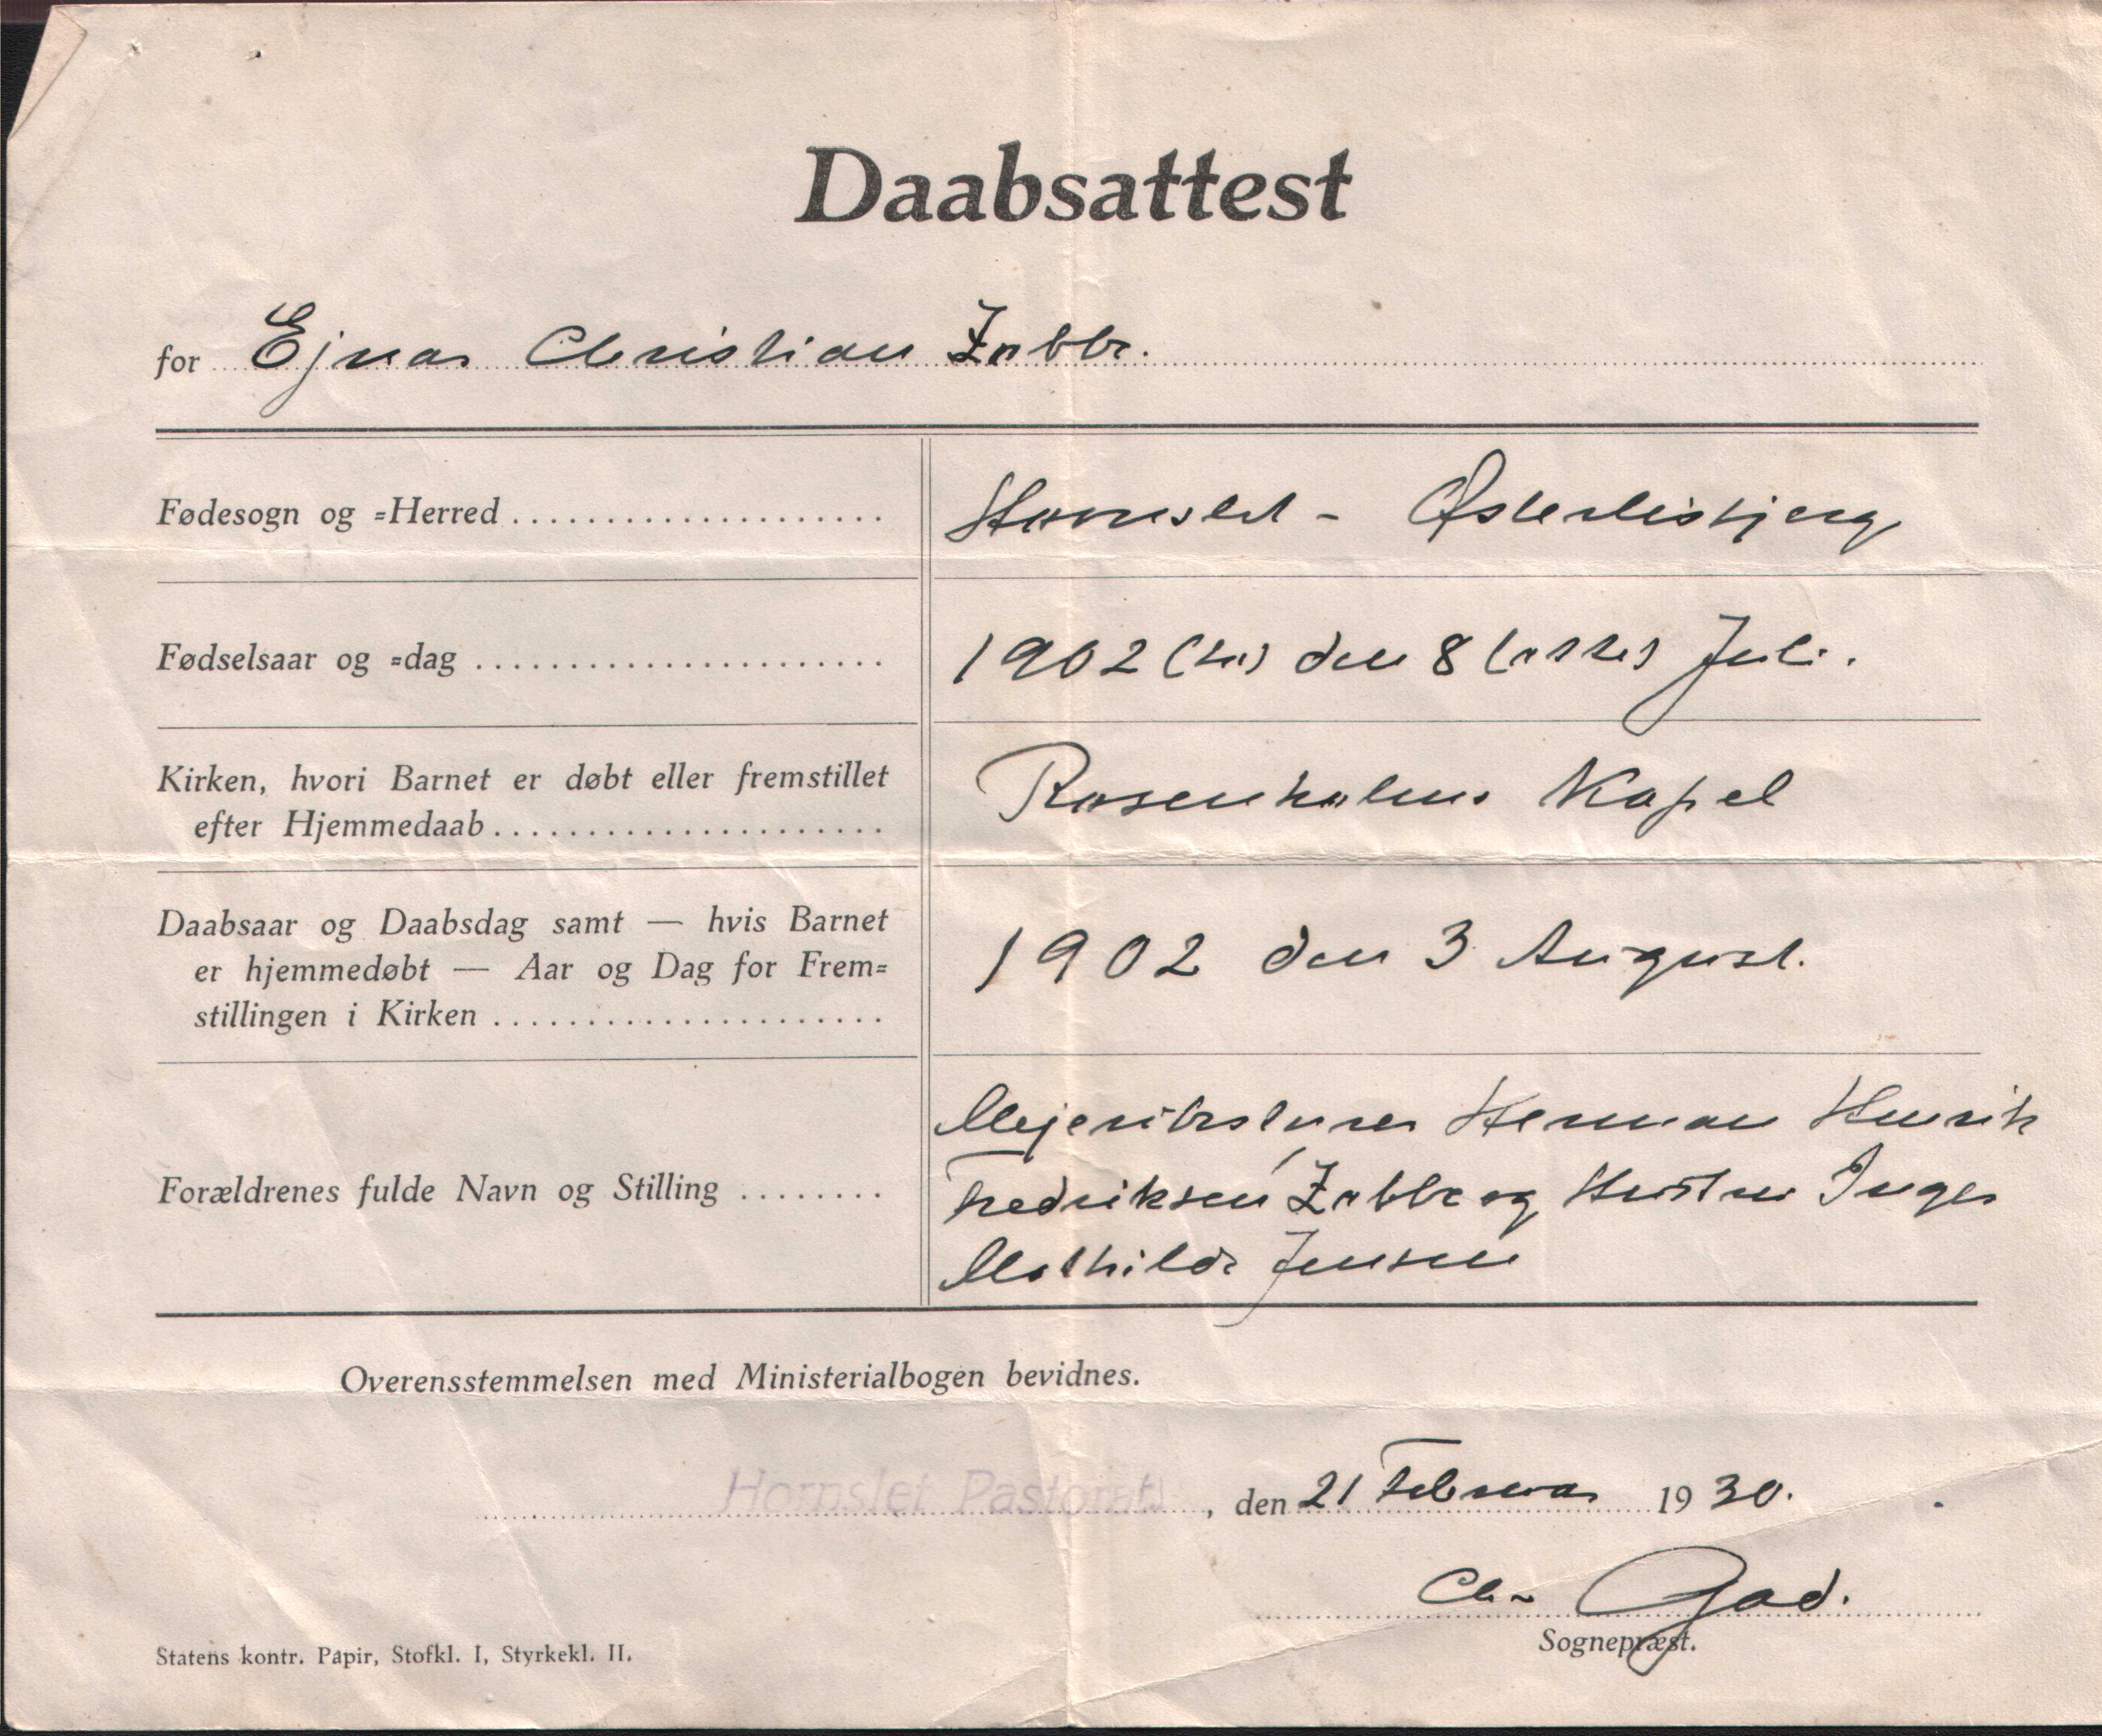 Daabsattest
for Ejnar Christian Zabbe.
Fødesogn og =Herred Hornslet - Østerlisbjerg
Fødselsaar og =dag 1902 (to) den 8 (otte) Juli.
Kirken, hvori Barnet er døbt eller fremstillet
efter Hjemmedaab Rosenholms Kapel
Daabsaar og Daabsdag samt — hvis Barnet
er hjemmedøbt — Aar og Dag for Frem=
stillingen i Kirken 1902 den 3 August.
Forældrenes fulde Navn og Stilling
Mejeribestyrer Herman Henrik
Fredriksen Zabbe og Hustru Inger
Mathilde Jensen
Overensstemmelsen med Ministerialbogen bevidnes.
Hornslet Pastorat, den 21 Februar 1930.
Chr Gad.
Sognepræst.
Statens kontr. Papir, Stofkl. I, Styrkekl. II.